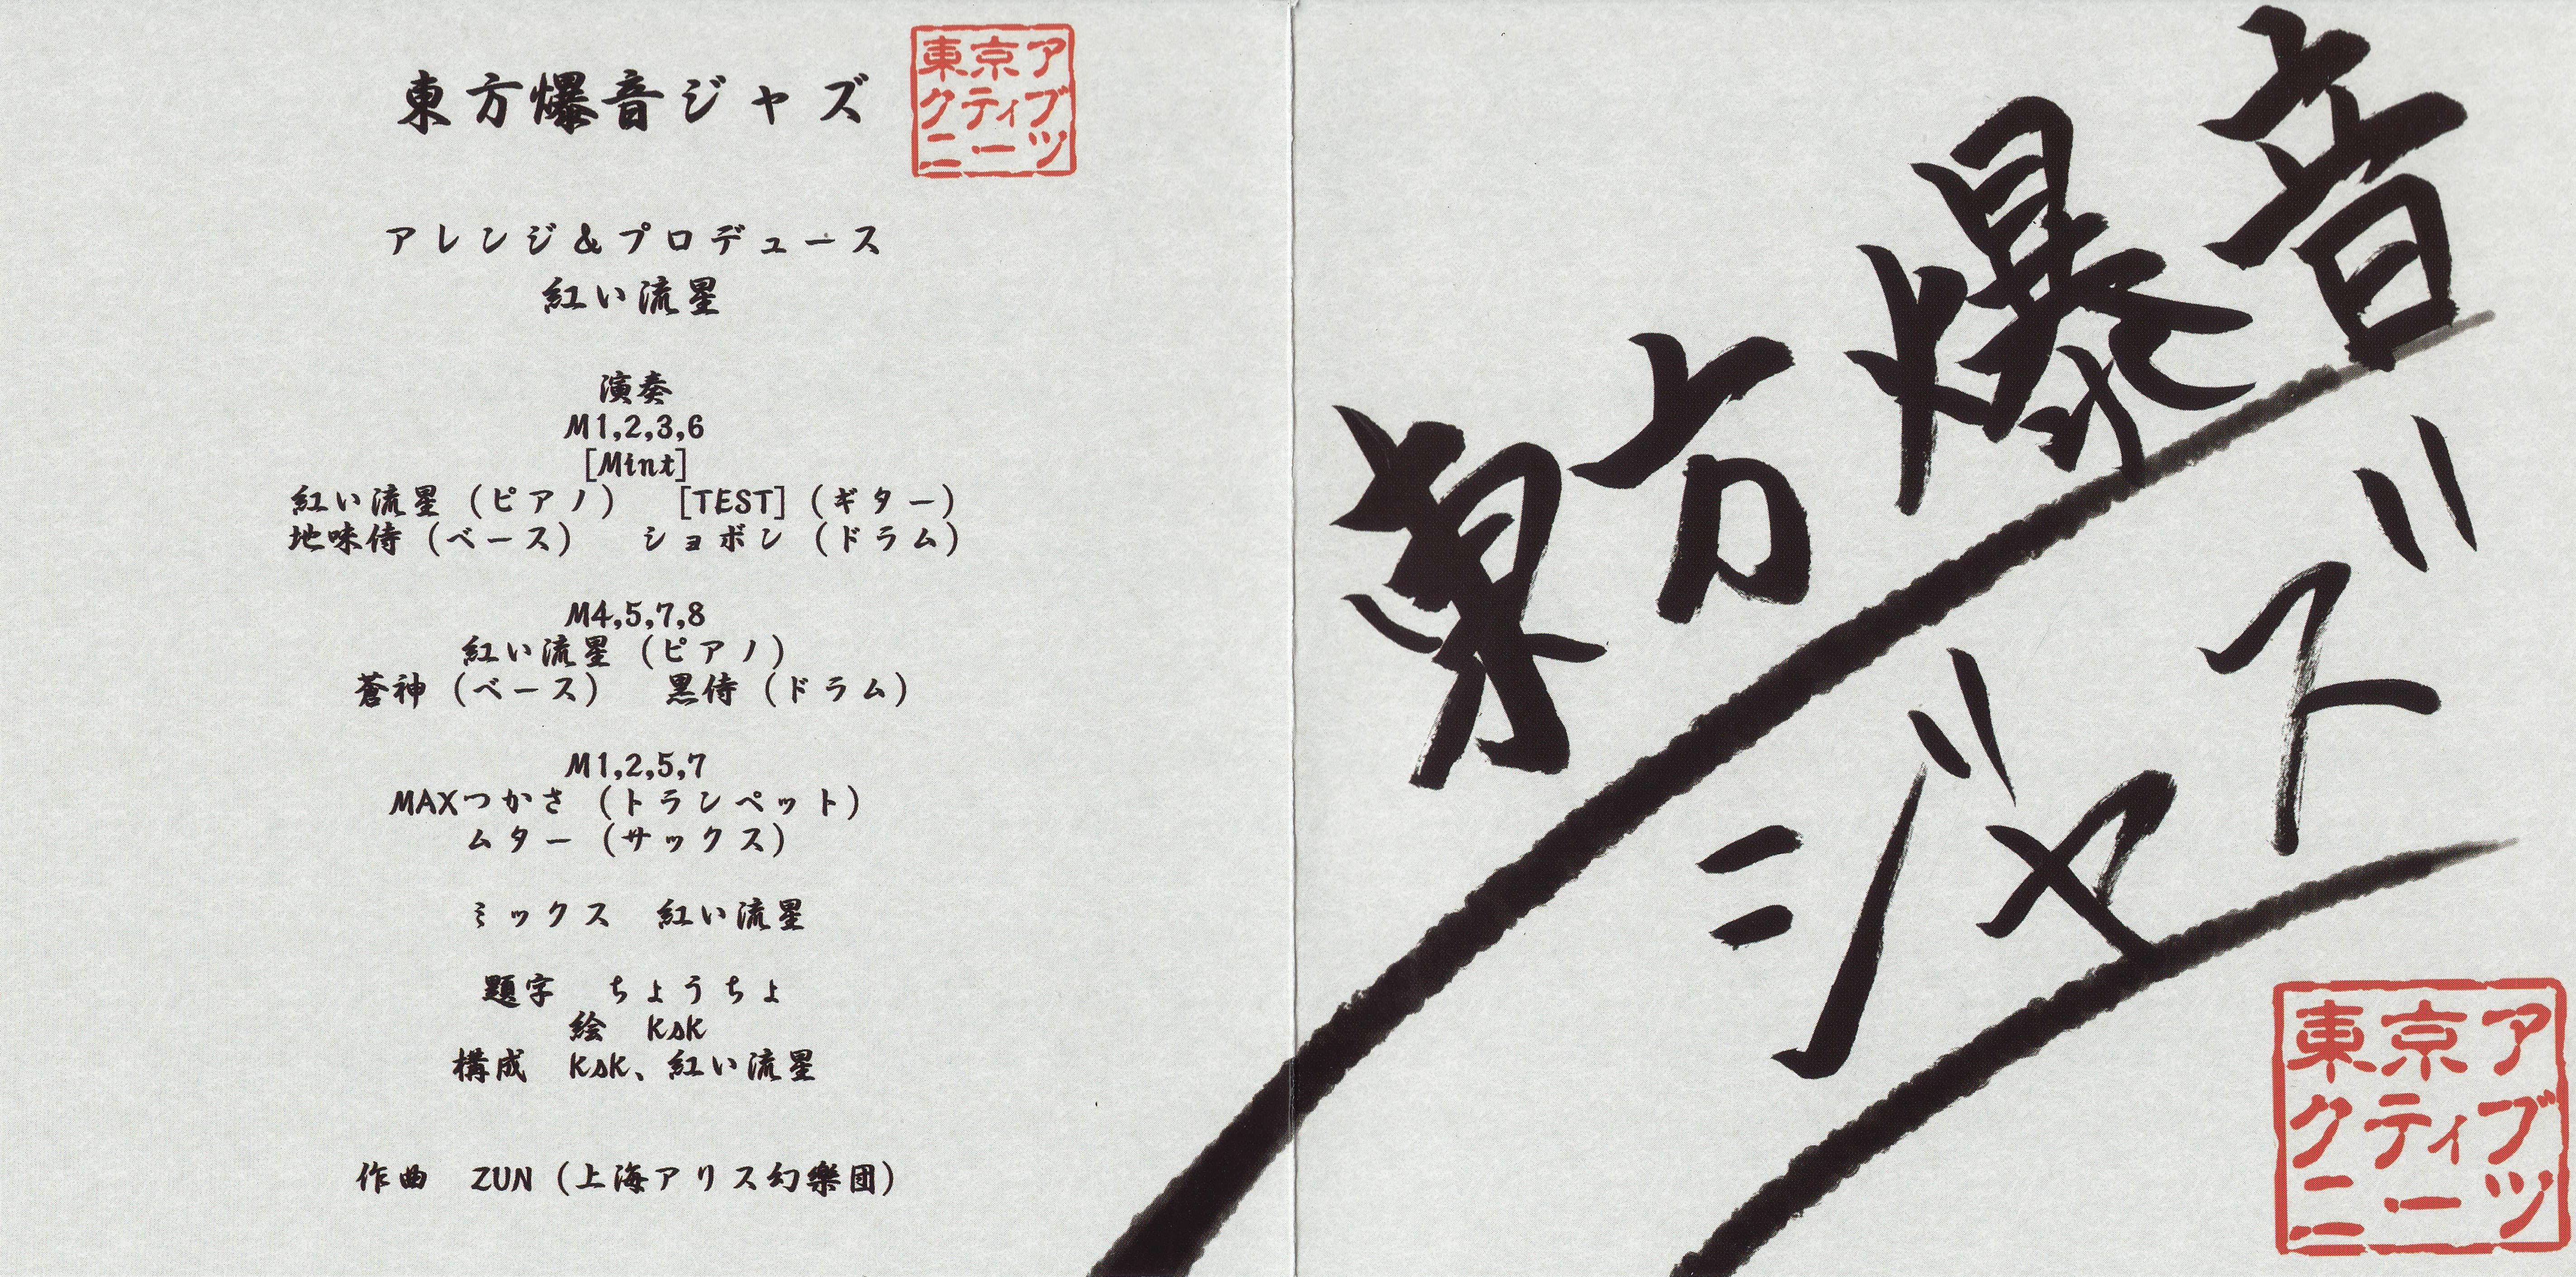 東方爆音ジャズ
東京ア
クティブ
ニーツ
アレンジ&プロデュース
紅い流星
演奏
M1,2,3,6
[Mint]
紅い流星（ピアノ）　[TEST]（ギター）
地味侍（ベース）　ショボン（ドラム）
M4,5,7,8
紅い流星（ピアノ）
蒼神（ベース）　黒侍（ドラム）
M1,2,5,7
MAXつかさ（トランペット）
ムター（サックス）
ミックス　紅い流星
題字　ちょうちょ
絵　KsK
構成　KsK、紅い流星
作曲　ZUN（上海アリス幻樂団）
東方爆音
ジャズ
東京ア
クティブ
ニーツ